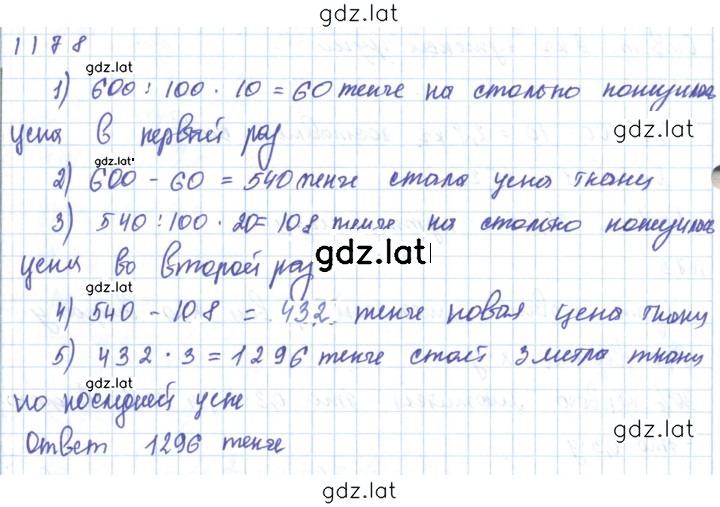 gdz.lat
1178
gdz.lat
1) 600 : 100 · 10 = 60 тенге на столько понизилась
цена в первый раз
gdz.lat
2) 600 - 60 = 540 тенге стала цена ткани
3) 540 : 100 · 20 = 108 тенге на столько понизилась
gdz.lat
цена во второй раз
gdz.lat
4) 540 - 108 = 432 тенге новая цена ткани
gdz.lat
5) 432 · 3 = 1296 тенге стоят 3 метра ткани
gdz.lat
по последней цене
gdz.lat
Ответ 1296 тенге
gdz.lat